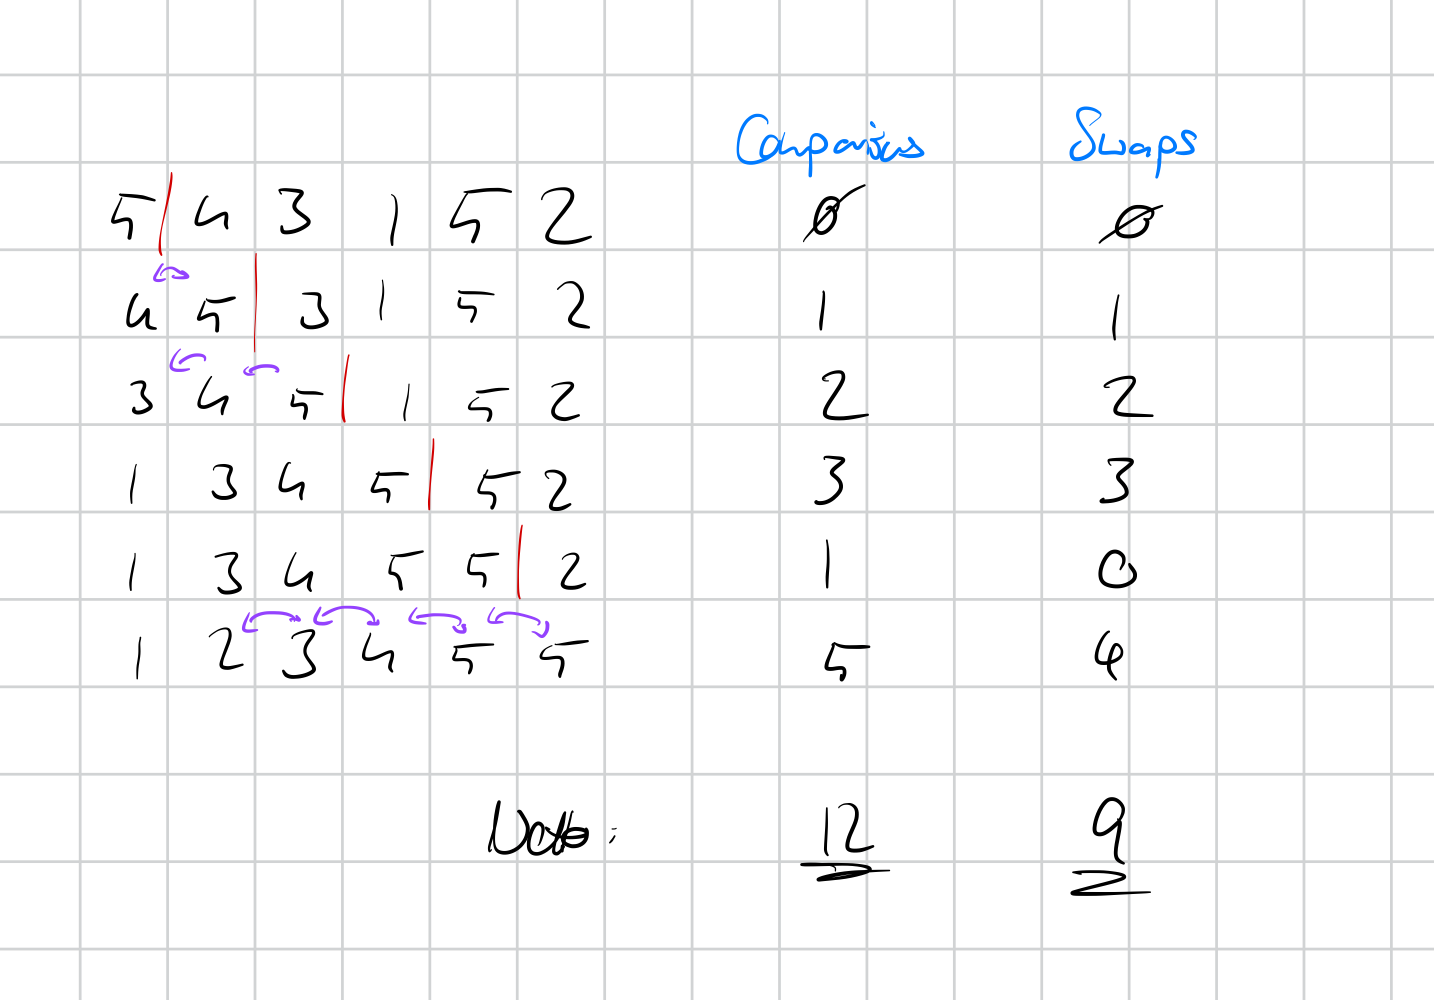 Comparisons Swaps
5 | 4 3 1 5 2 0 0
4 5 | 3 1 5 2 1 1
3 4 5 | 1 5 2 2 2
1 3 4 5 | 5 2 3 3
1 3 4 5 5 | 2 1 0
1 2 3 4 5 5 5 4
12 9